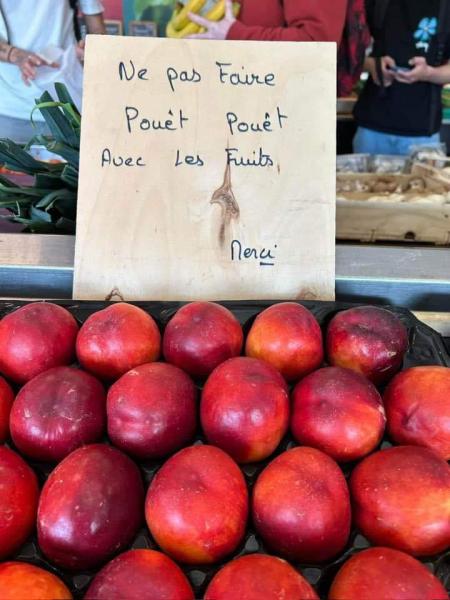 Ne pas Faire
Pouêt Pouêt
Avec Les Fruits
Merci